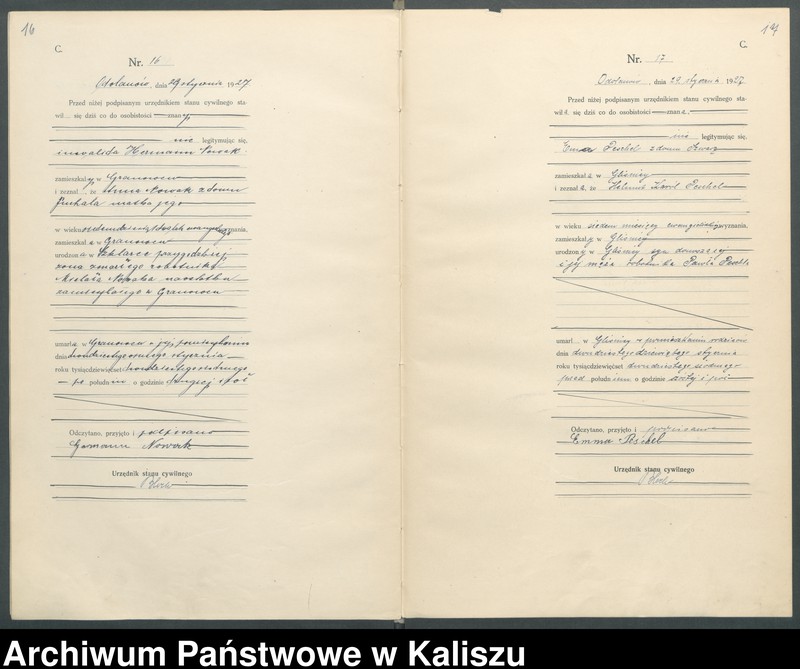 16
C.
Nr. 16
Odolanów, dnia 29 stycznia 1927
Przed niżej podpisanym urzędnikiem stanu cywilnego sta-
wił się dziś co do osobistości znany
nie legitymując się,
inwalida Hermann Nowak
zamieszkały w Granowcu
i zeznał, że Anna Nowak z domu
Puchała matka jego
w wieku wyznania,
zamieszkała w Granowcu
urodzona w
żona zmarłego robotnika
zamieszkałego w Granowcu
umarła w Granowcu w jej pomieszkaniu
dnia dwudziestego ósmego stycznia
roku tysiącdziewięćset dwudziestego siódmego
po południu o godzinie
Odczytano, przyjęto i podpisano
Hermann Nowak
Urzędnik stanu cywilnego
17
C.
Nr. 17
Odolanów, dnia 29 stycznia 1927
Przed niżej podpisanym urzędnikiem stanu cywilnego sta-
wiła się dziś co do osobistości znana,
nie legitymując się,
Emma Peschel z domu
zamieszkała w Gliśnicy
i zeznała, że Helmut Karol Peschel
w wieku siedem miesięcy wyznania,
zamieszkały w Gliśnicy
urodzony w Gliśnicy syn donoszącej
i jej męża robotnika Pawła
umarł w Gliśnicy w pomieszkaniu rodziców
dnia dwudziestego dziewiątego stycznia
roku tysiącdziewięćset dwudziestego siódmego
przed południem o godzinie szóstej i pół
Odczytano, przyjęto i podpisano
Emma Peschel
Urzędnik stanu cywilnego
Archiwum Państwowe w Kaliszu